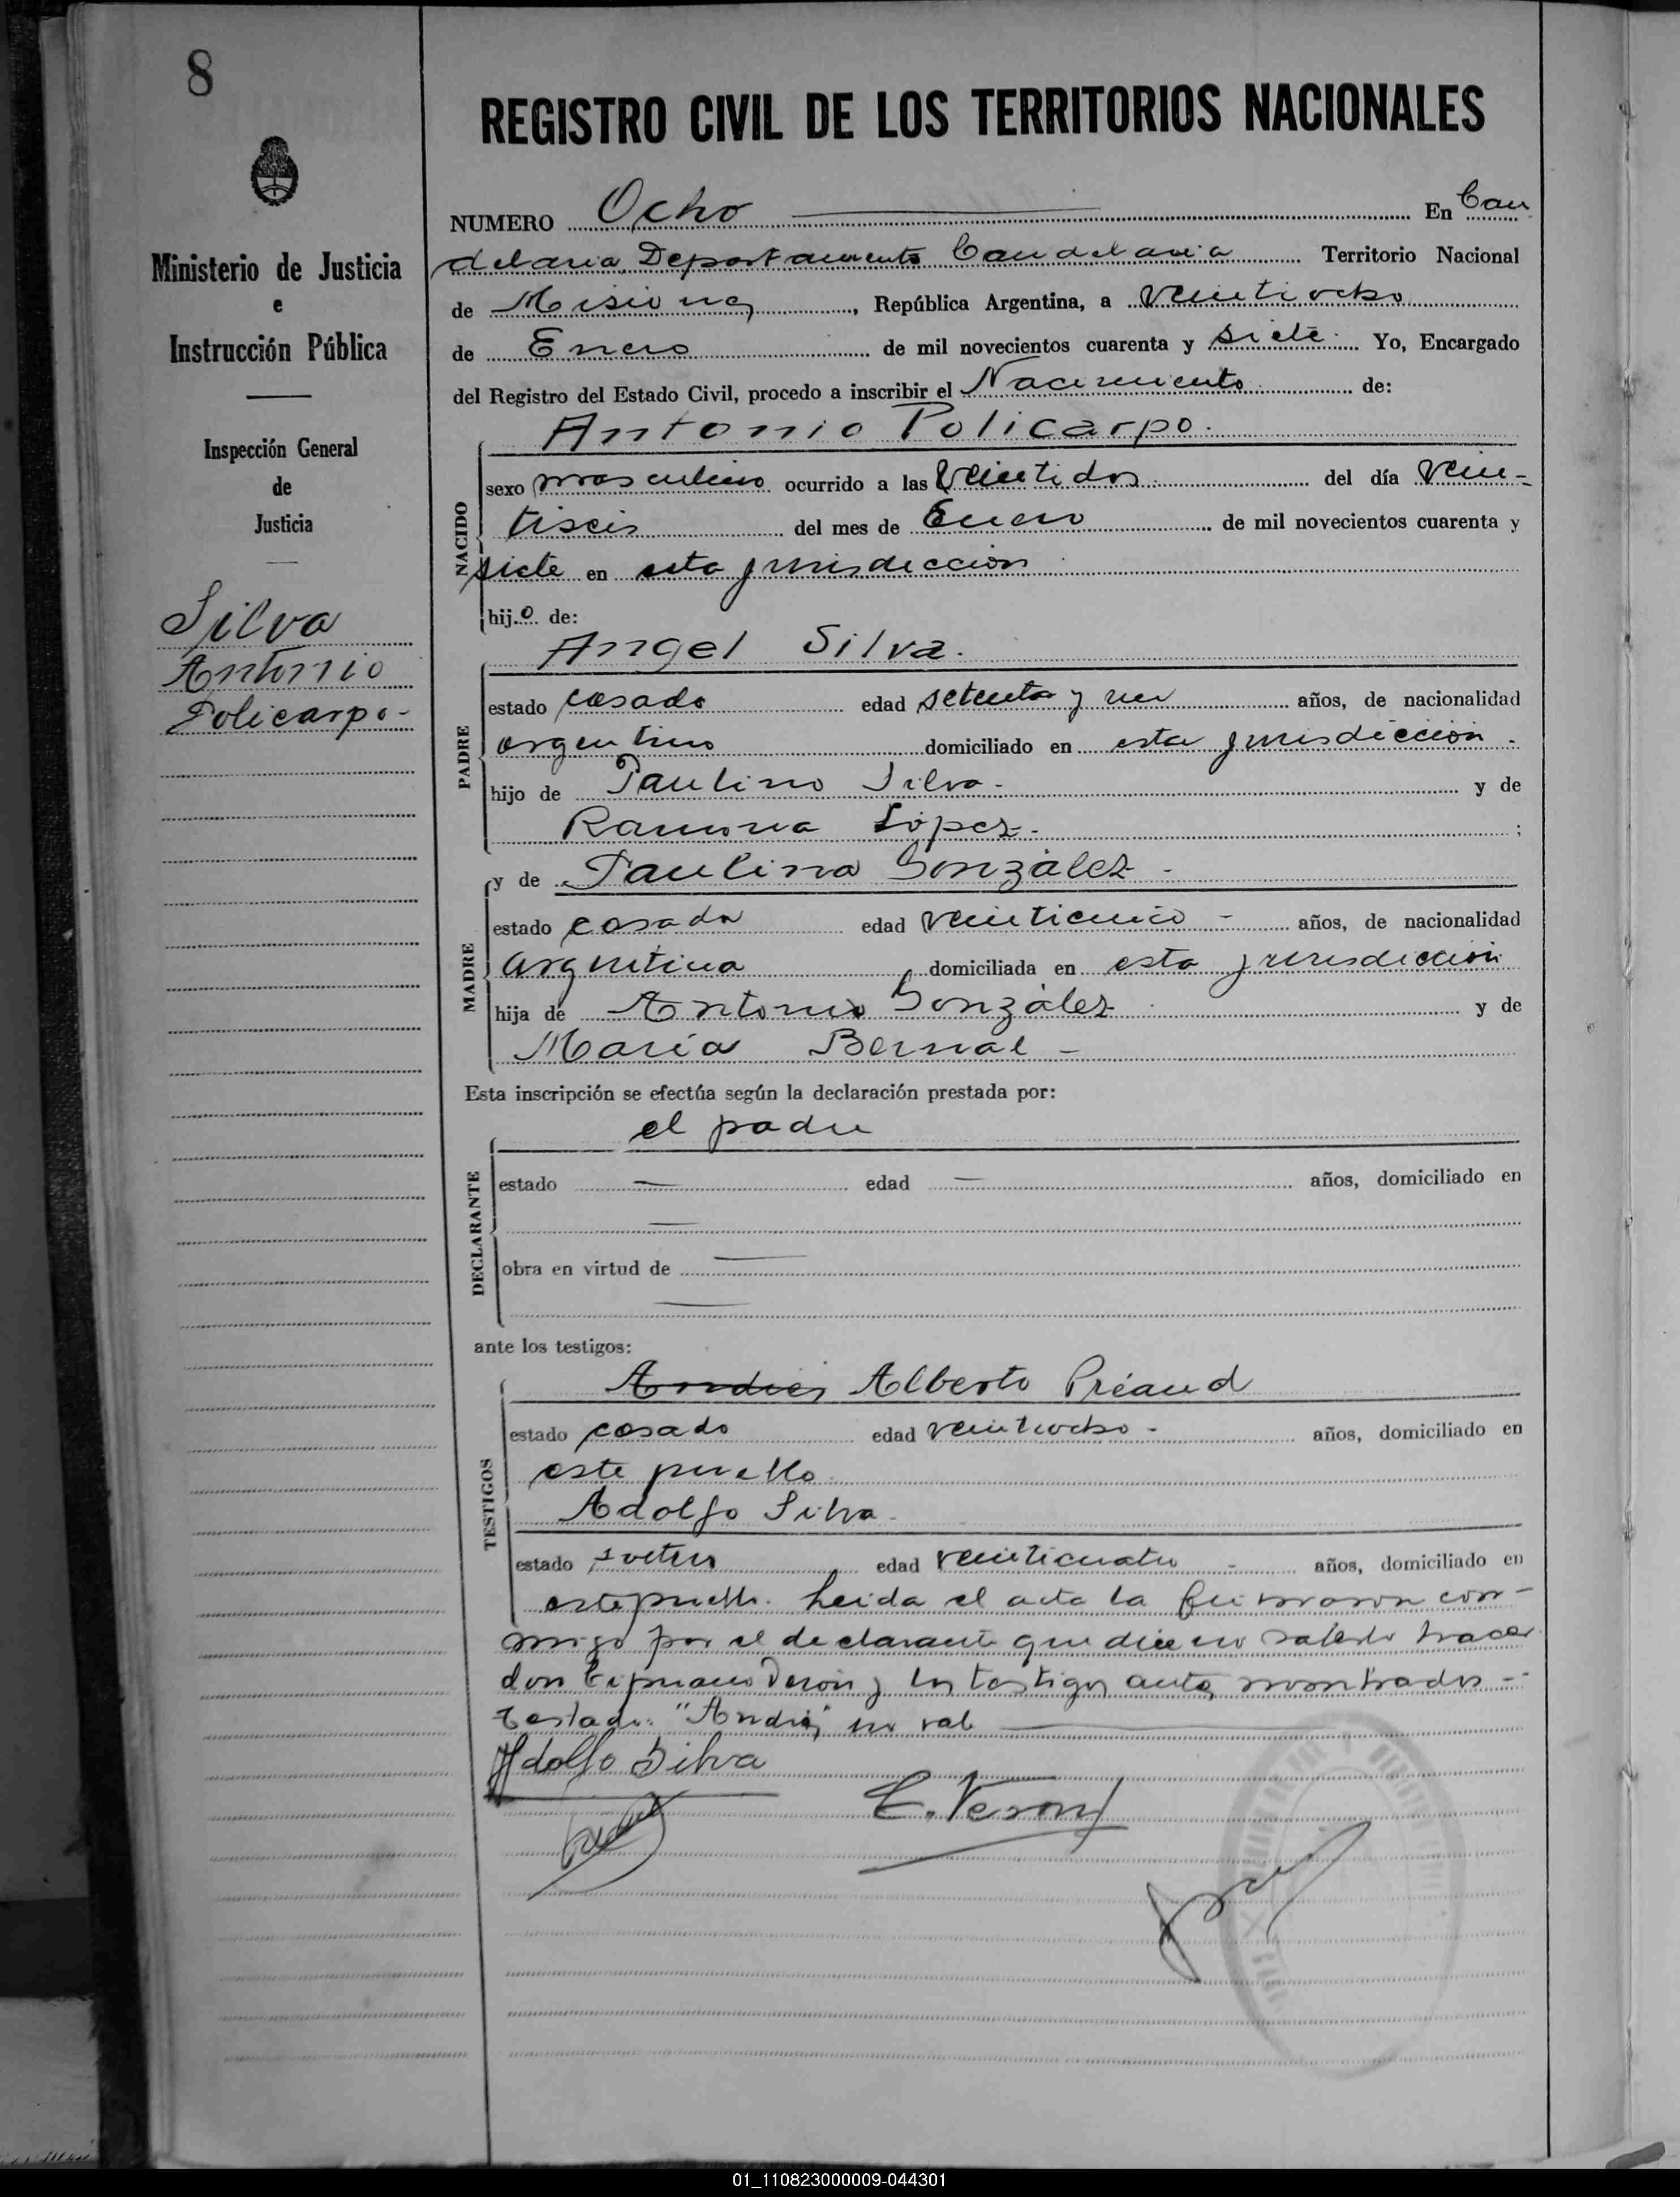 8
REGISTRO CIVIL DE LOS TERRITORIOS NACIONALES
Ministerio de Justicia
e
Instrucción Pública
Inspección General
de
Justicia
Silva
Antonio
Policarpo-
NUMERO Ocho En Can
delaria Departamento Candelaria Territorio Nacional
de Misiones, República Argentina, a veintiocho
de Enero de mil novecientos cuarenta y siete. Yo, Encargado
del Registro del Estado Civil, procedo a inscribir el Nacimiento de:
Antonio Policarpo.
NACIDO
sexo masculino ocurrido a las veintidos del día vein-
tiseis del mes de Enero de mil novecientos cuarenta y
siete en esta jurisdiccion
hijo de:
Angel Silva.
PADRE
estado casado edad setenta y un años, de nacionalidad
argentino domiciliado en esta jurisdicción.
hijo de Paulino Silva- y de
Ramona López-;
y de Paulina González-
MADRE
estado casada edad veinticinco - años, de nacionalidad
argentina domiciliada en esta jurisdicción
hija de Antonio González y de
María Bernal -
Esta inscripción se efectúa según la declaración prestada por:
el padre
DECLARANTE
estado — edad — años, domiciliado en
—
obra en virtud de —
—
ante los testigos:
Andres Alberto Préaud
TESTIGOS
estado casado edad veintiocho - años, domiciliado en
este pueblo
Adolfo Silva
estado soltero edad veinticuatro - años, domiciliado en
este pueblo. Leida el acta la firmaron con-
migo por el declarante que dice no saberlo hacer
don Cipriano Verón y los testigos antes nombrados -
Testado: "Andres" no vale
Adolfo Silva
C. Veron
01_110823000009-044301